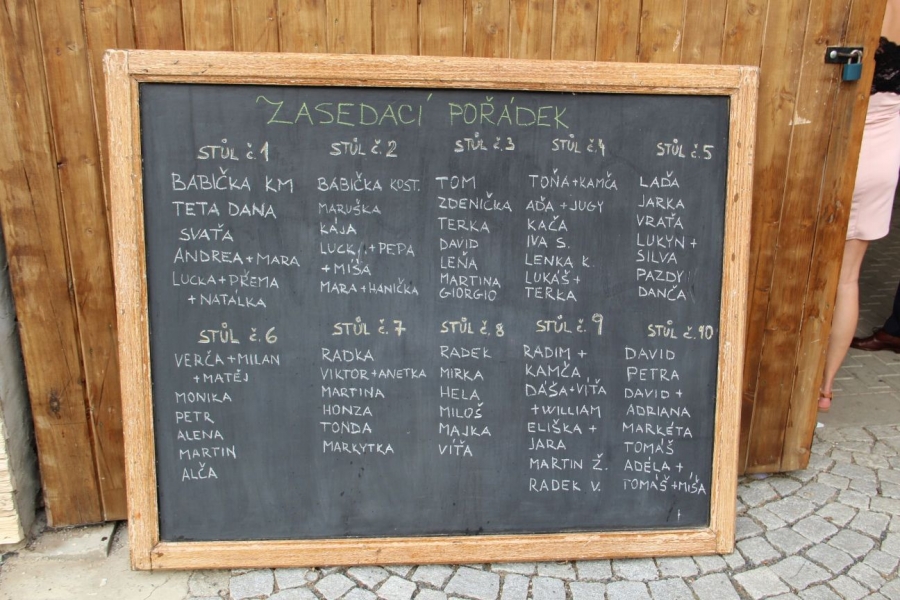 ZASEDACÍ POŘÁDEK
STŮL č.1
BABIČKA KM
TETA DANA
SVAŤA
ANDREA+MARA
LUCKA+PŘEMA
+NATÁLKA
STŮL č.2
BABIČKA KOST.
MARUŠKA
KÁJA
+PEPA
+MÍŠA
MARA+HANIČKA
STŮL č.3
TOM
ZDENIČKA
TERKA
DAVID
LEŇA
MARTINA
GIORGIO
STŮL č.4
TOŇA+KAMČA
AĎA+JUGY
KAČA
IVA S.
LENKA K.
LUKÁŠ+
TERKA
STŮL č.5
LAĎA
JARKA
VRAŤA
LUKYN+
SILVA
PAZDY
DANČA
STŮL č.6
VERČA+MILAN
+MATĚJ
MONIKA
PETR
ALENA
MARTIN
ALČA
STŮL č.7
RADKA
VIKTOR+ANETKA
MARTINA
HONZA
TONDA
MARKYTKA
STŮL č.8
RADEK
MIRKA
HELA
MILOŠ
MAJKA
VÍŤA
STŮL č.9
RADIM +
KAMČA
DÁŠA+VÍŤA
+WILLIAM
ELIŠKA +
JARA
MARTIN Ž.
RADEK V.
STŮL č.10
DAVID
PETRA
DAVID +
ADRIANA
MARKÉTA
TOMÁŠ
ADÉLA +
TOMÁŠ+MÍŠA